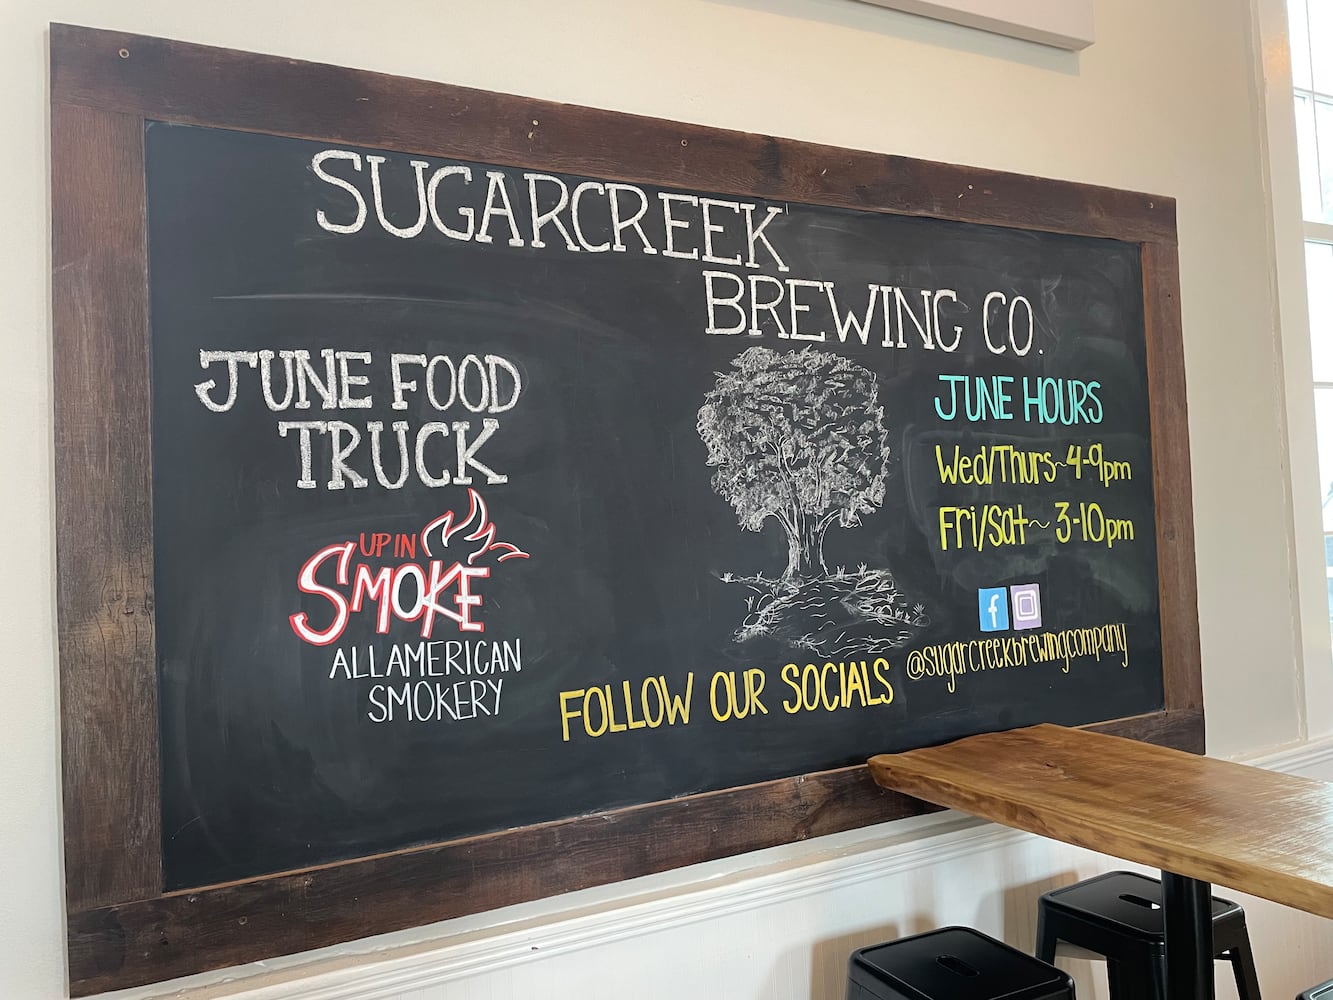 SUGARCREEK
BREWING CO.
JUNE FOOD
TRUCK
UP IN
SMOKE
ALLAMERICAN
SMOKERY
JUNE HOURS
Wed/Thurs~4-9pm
Fri/Sat~ 3-10pm
f
@sugarcreekbrewingcompany
FOLLOW OUR SOCIALS